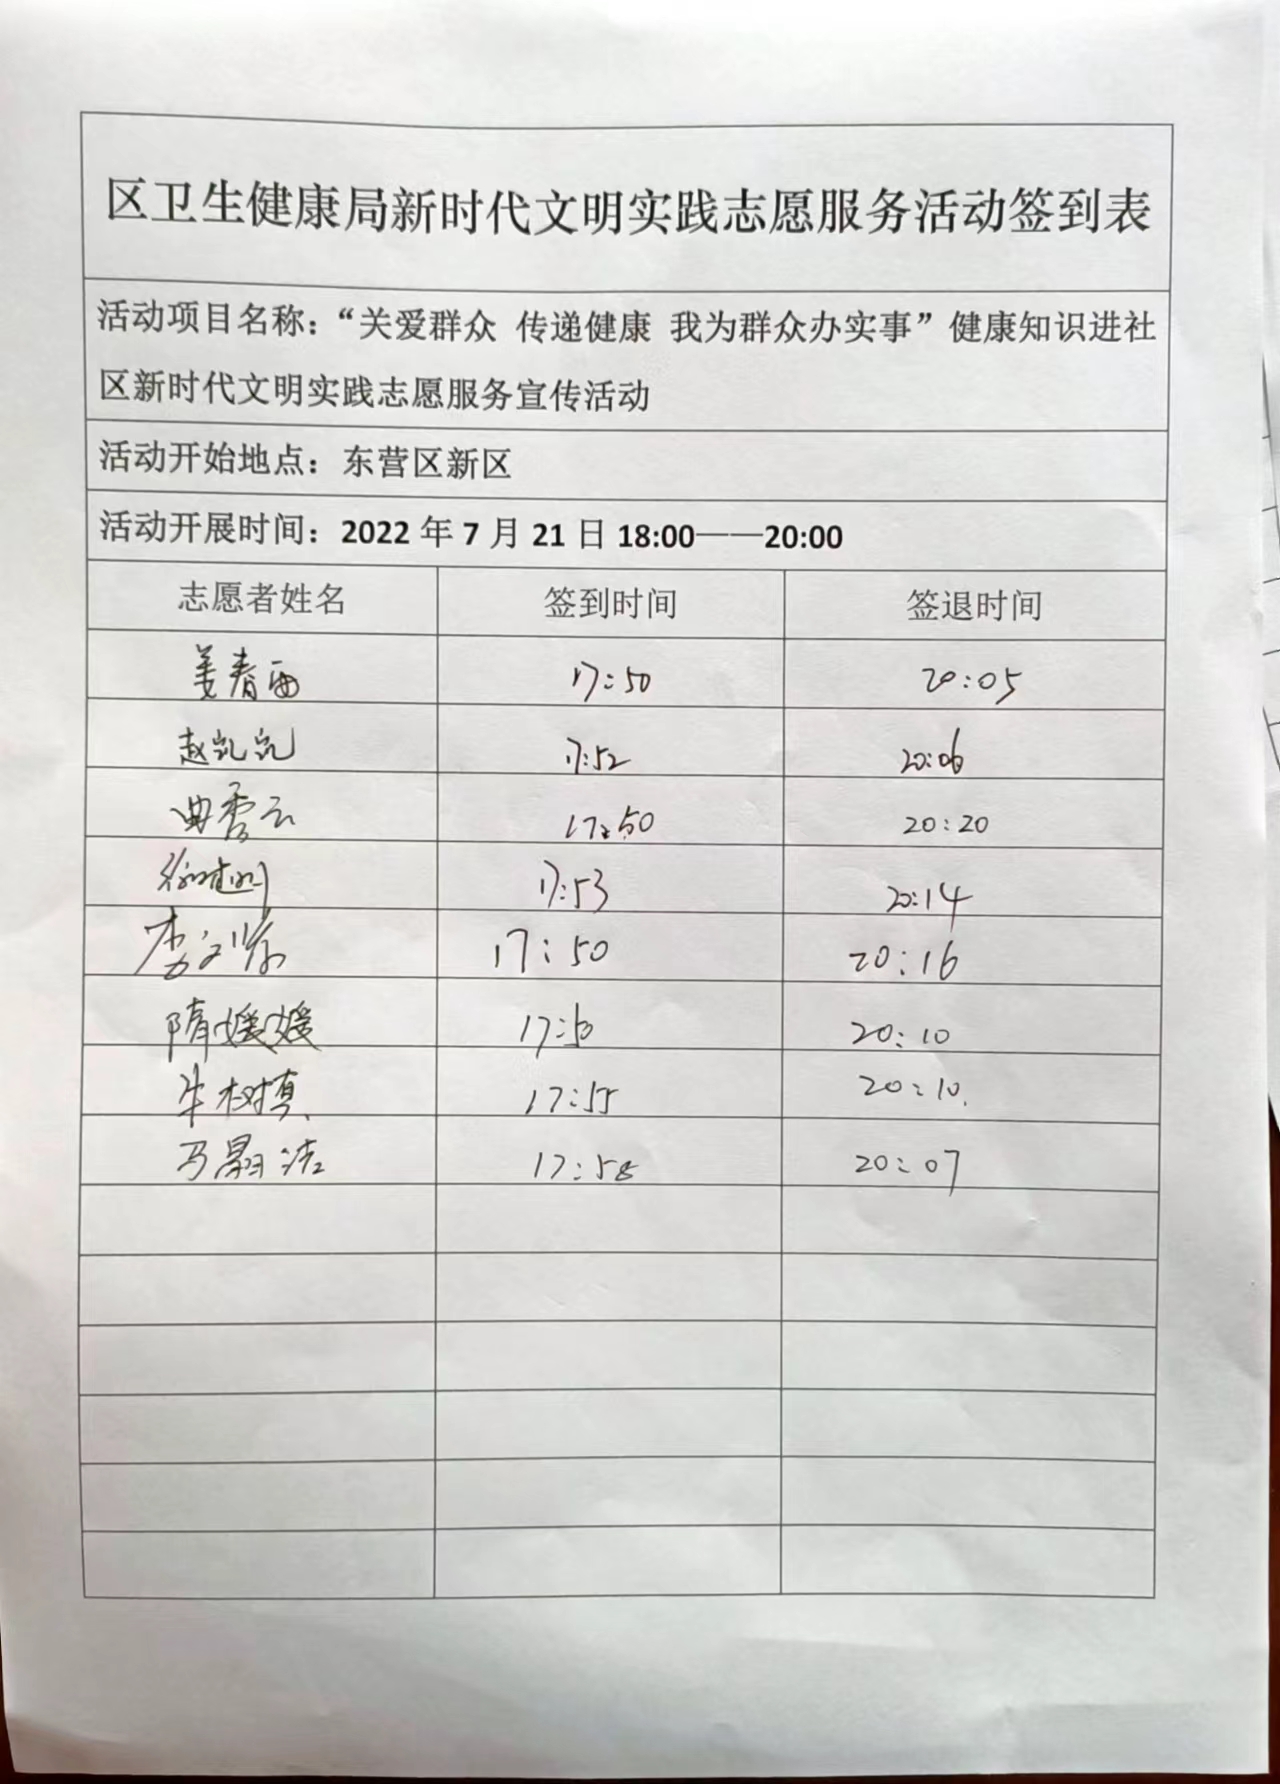 区卫生健康局新时代文明实践志愿服务活动签到表
活动项目名称：“关爱群众 传递健康 我为群众办实事”健康知识进社
区新时代文明实践志愿服务宣传活动
活动开始地点：东营区新区
活动开展时间：2022年7月21日18:00——20:00
志愿者姓名 签到时间 签退时间
姜春雨 17:50 20:05
赵凯凯 17:52 20:06
曲秀云 17:50 20:20
17:53 20:14
17:50 20:16
隋媛媛 17:50 20:10
牛树真 17:55 20:10.
马洁 17:58 20:07